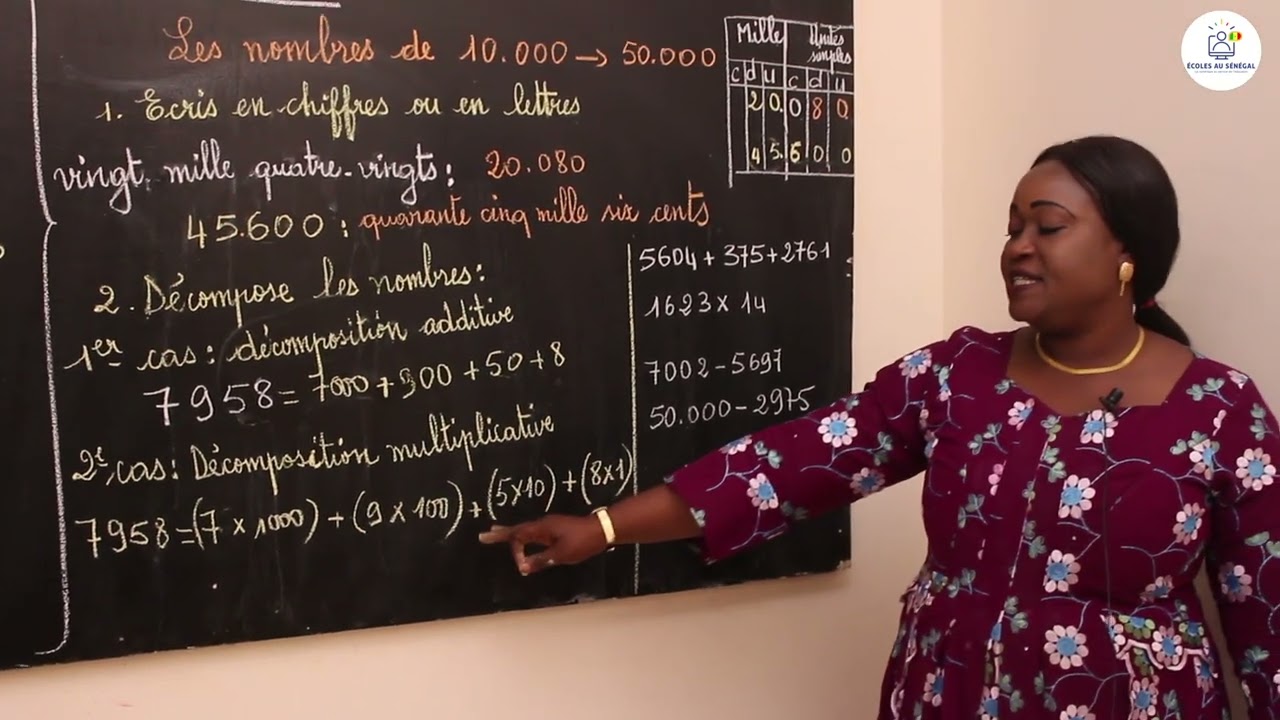 Les nombres de 10.000 → 50.000
1. Ecris en chiffres ou en lettres
vingt. mille quatre-vingts : 20.080
45.600 : quarante cinq mille six cents
2. Décompose les nombres :
1er cas : décomposition additive
7958 = 7000 + 900 + 50 + 8
2e cas : Décomposition multiplicative
7958 = (7 x 1000) + (9 x 100) + (5 x 10) + (8 x 1)
Mille Unités simples
c d u c d u
2 0. 0 8 0
4 5. 6 0 0
5604 + 375 + 2761
1623 x 14
7002 - 5697
50.000 - 2975
ÉCOLES AU SÉNÉGAL